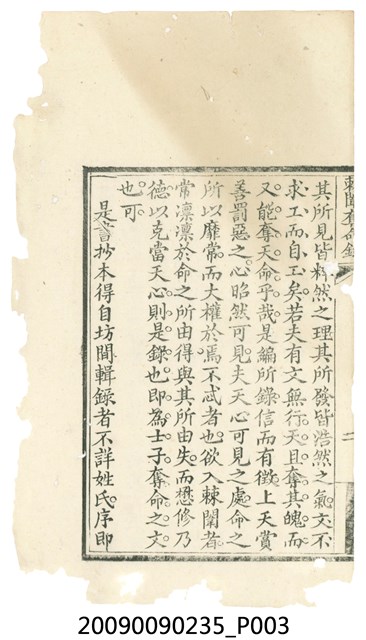 棘闈奪命錄
二
其所見皆粹然之理其所發皆浩然之氣文不
求工而自工矣若夫有文無行天且奪其魄而
又能奪天命乎哉是編所錄信而有徵上天賞
善罰惡之心昭然可見夫天心可見之處命之
所以靡常而大權於焉不忒者也欲入棘闈者
常凛凛於命之所由得與其所由失而懋修乃
德以克當天心則是錄也即為士子奪命之文
也可
是書抄本得自坊間輯錄者不詳姓氏序即
20090090235_P003